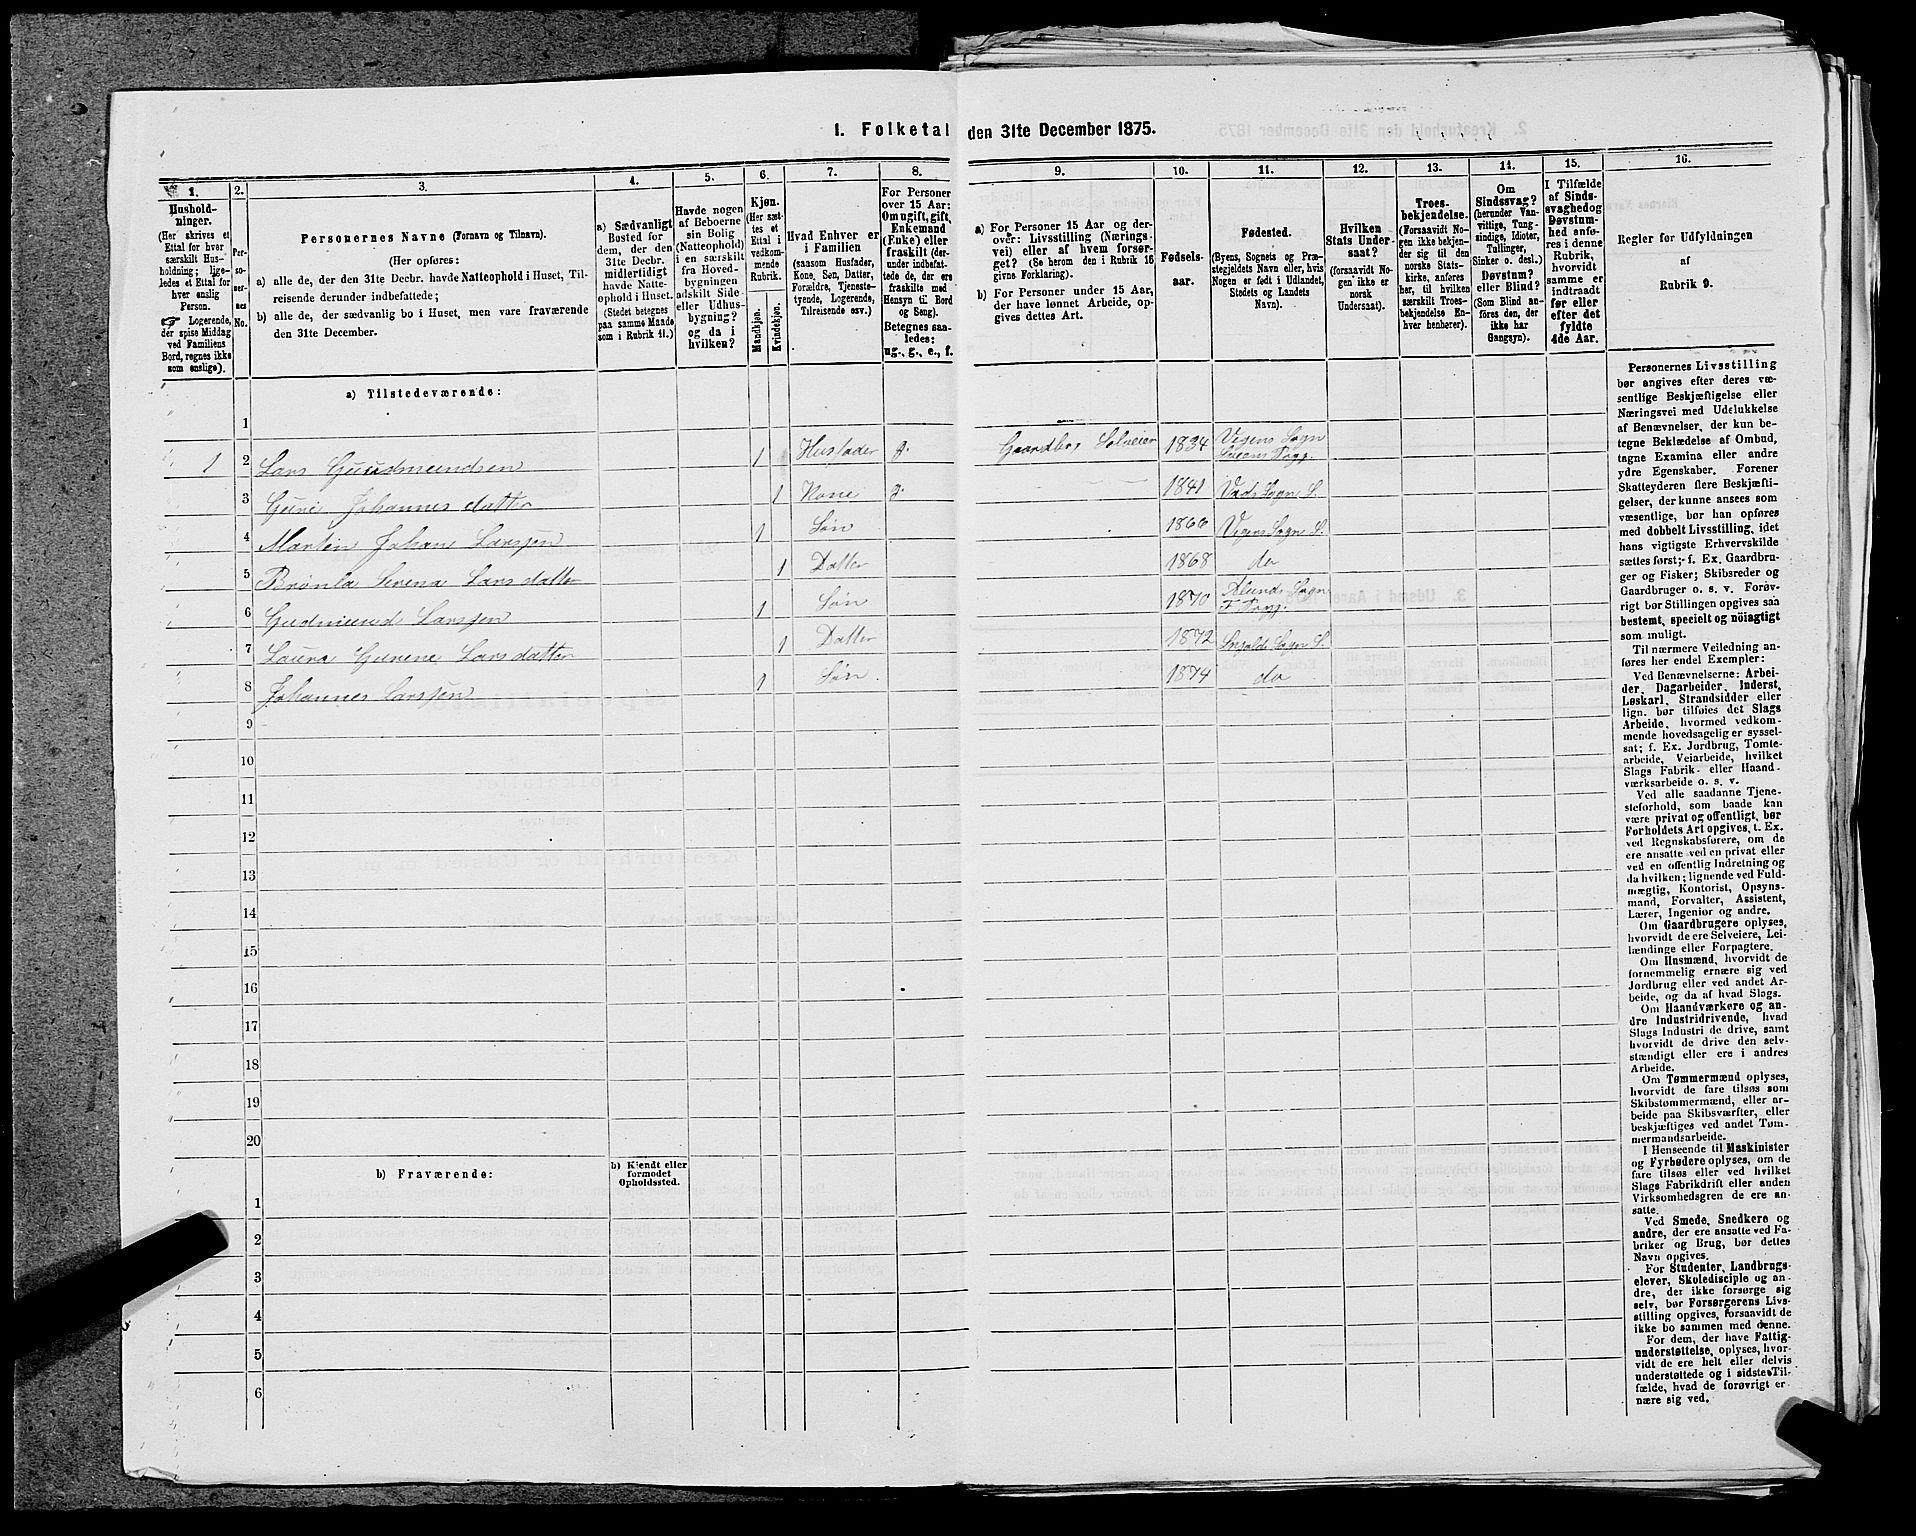 I. Folketal den 31te December 1875.
1.
2.
3.
4.
5.
6.
7.
8.
9.
10.
11.
12.
13.
14.
15.
16.
Hushold-
ninger.
(Her skrives et
Ettal for hver
særskilt Hus-
holdning; lige-
ledes et Ettal for
hver enslig
Person.
Logerende,
der spise Middag
ved Familiens
Bord, regnes ikke
som enslige).
Per-
so-
ner-
nes
No.
Personernes Navne (Fornavn og Tilnavn).
(Her opføres:
a) alle de, der den 31te Decbr. havde Natteophold i Huset, Til-
reisende derunder indbefattede;
b) alle de, der sædvanlig bo i Huset, men vare fraværende
den 31te December.
a) Sædvanligt
Bosted for
dem, der den
31te Decbr.
midlertidigt
havde Natte-
ophold i Huset.
(Stedet betegnes
paa samme Maade
som i Rubrik 11.)
Havde nogen
af Beboerne
sin Bolig
(Natteophold)
i en særskilt
fra Hoved-
bygningen
adskilt Side
eller Udhus-
bygning?
og da i
hvilken?
Kjøn.
(Her sæt-
tes et
Ettal i
vedkom-
mende
Rubrik.
Mandkjøn.
Kvindekjøn.
Hvad Enhver er
i Familien
(saasom Husfader,
Kone, Søn, Datter,
Forældre, Tjeneste-
tyende, Logerende,
Tilreisende osv.)
For Personer
over 15 Aar:
Om ugift, gift,
Enkemand
(Enke) eller
fraskilt (der-
under indbefat-
tede de, der ere
fraskilte med
Hensyn til Bord
og Seng).
Betegnes saa-
ledes:
ug., g., e., f.
a) For Personer 15 Aar og der-
over: Livsstilling (Nærings-
vei) eller af hvem forsør-
get? (Se herom den i Rubrik 16
givne Forklaring).
b) For Personer under 15 Aar,
der have lønnet Arbeide, op-
gives dettes Art.
Fødsels-
aar.
Fødested.
(Byens, Sognets og Præ-
stegjeldets Navn eller, hvis
Nogen er født i Udlandet,
Stedets og Landets
Navn).
Hvilken
Stats Under-
saat?
(forsaavidt No-
gen ikke er
norsk
Undersaat).
Troes-
bekjendelse.
(Forsaavidt No-
gen ikke bekjen-
der sig til den
norske Stats-
kirke, anføres
her, til hvilken
særskilt Troes-
bekjendelse En-
hver henhører).
Om
Sindssvag?
(herunder Van-
vittige, Tung-
sindige, Idioter,
Tullinger,
Sinker o. desl.)
Døvstum?
eller Blind?
(Som Blind an-
føres den, der
ikke har
Gangsyn).
I Tilfælde
af Sinds-
svaghed og
Døvstum-
hed anfø-
res i denne
Rubrik,
hvorvidt
samme er
indtraadt
før eller
efter det
fyldte
4de Aar.
Regler før Udfyldningen
af
Rubrik 9.
a) Tilstedeværende:
1
1 2 Lars Gundmundsen 1 Husfader g. Gaardbr. Selveier 1834 Vigens Sogn
3 Johannesdatter 1 Kone g. 1841 Sogn S.
4 Martin Johan Larssen 1 Søn 1866 Vigens Sogn S.
5 Serena Larsdatter 1 Datter 1868 do
6 Gudmund Larssen 1 Søn 1870 Sogn
7 Laura Gurene Larsdatter 1 Datter 1872 Sogn S.
8 Johannes Larssen 1 Søn 1874 do
9
10
11
12
13
14
15
16
17
18
19
20
b) Fraværende:
b) Kjendt eller
formodet
Opholdssted.
1
2
3
4
5
6
Personernes Livsstilling
bør angives efter deres væ-
sentlige Beskjæftigelse eller
Næringsvei med Udelukkelse
af Benævnelser, der kun be-
tegne Beklædelse af Ombud,
tagne Examina eller andre
ydre Egenskaber. Forener
Skatteyderen flere Beskjæfti-
gelser, der kunne ansees som
væsentlige, bør han opføres
med dobbelt Livsstilling, idet
hans vigtigste Erhvervskilde
sættes først; f. Ex. Gaardbru-
ger og Fisker; Skibsreder og
Gaardbruger o. s. v. Forøv-
rigt bør Stillingen opgives saa
bestemt, specielt og nøiagtigt
som muligt.
Til nærmere Veiledning an-
føres her endel Exempler:
Ved Benævnelserne: Arbei-
der, Dagarbeider, Inderst,
Løskarl, Strandsidder eller
lign. bør tilføies det Slags
Arbeide, hvormed vedkom-
mende hovedsagelig er syssel-
sat; f. Ex. Jordbrug, Tomte-
arbeide, Veiarbeide, hvilket
Slags Fabrik- eller Haand-
værksarbeide o. s. v.
Ved alle saadanne Tjene-
steforhold, som baade kan
være privat og offentligt, bør
Forholdets Art opgives, t. Ex.
ved Regnskabsførere, om de
ere ansatte ved en privat eller
ved en offentlig Indretning og
da hvilken; lignende ved Fuld-
mægtig, Kontorist, Opsyns-
mand, Forvalter, Assistent,
Lærer, Ingeniør og andre.
Om Gaardbrugere oplyses,
hvorvidt de ere Selveiere, Lei-
lændinge eller Forpagtere.
Om Husmænd, hvorvidt de
fornemmelig ernære sig ved
Jordbrug eller ved andet Ar-
beide, og da af hvad Slags.
Om Haandværkere og an-
dre Industridrivende, hvad
Slags Industri de drive, samt
hvorvidt de drive den selv-
stændigt eller ere i andres
Arbeide.
Om Tømmermænd oplyses,
hvorvidt de fare tilsøs som
Skibstømmermænd, eller ar-
beide paa Skibsværfter, eller
beskjæftiges ved andet Tøm-
mermandsarbeide.
I Henseende til Maskinister
og Fyrbødere oplyses, om de
fare tilsøs eller ved hvilket
Slags Fabrikdrift eller anden
Virksomhedsgren de ere an-
satte.
Ved Smede, Snedkere og
andre, der ere ansatte ved Fa-
briker og Brug, bør dettes
Navn opgives.
For Studenter, Landbrugs-
elever, Skoledisciple og an-
dre, der ikke forsørge sig
selv, bør Forsørgerens Livs-
stilling opgives, forsaavidt de
ikke bo sammen med denne.
For dem, der have Fattig-
understøttelse, oplyses, hvor-
vidt de ere helt eller delvis
understøttede og i sidste Til-
fælde, hvad de forøvrigt er-
nære sig ved.